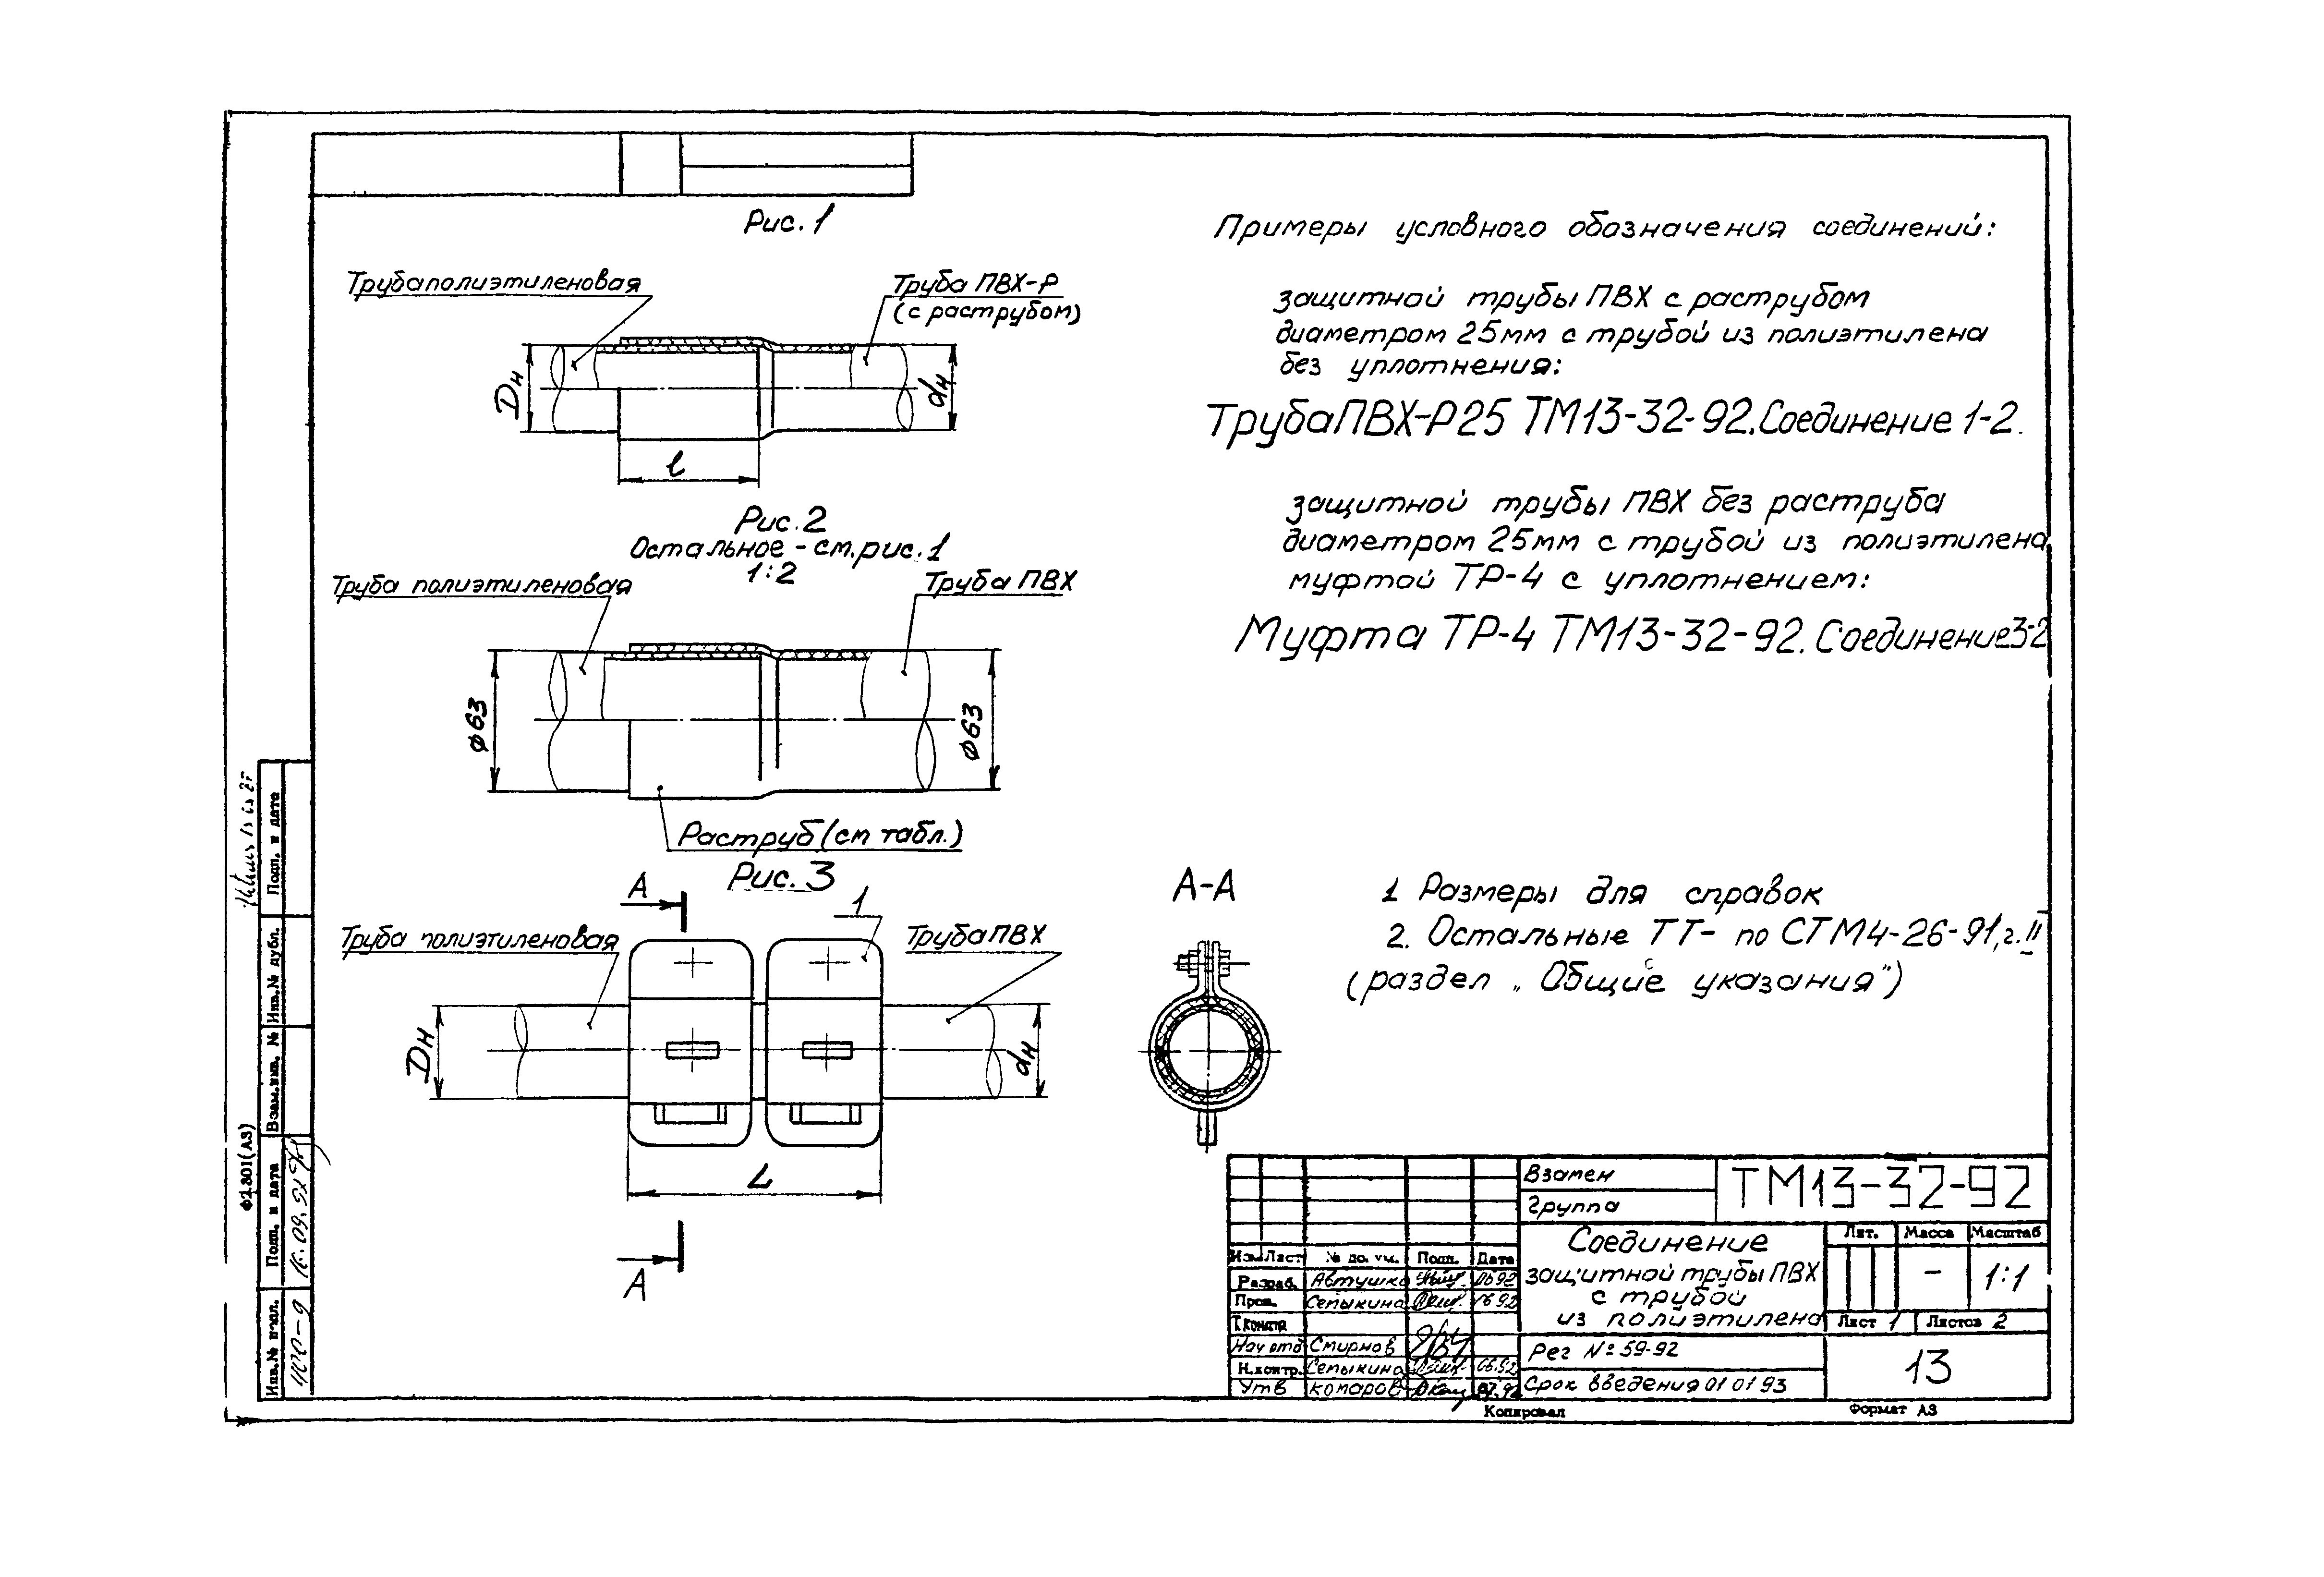 Рис. 1
Труба полиэтиленовая
Труба ПВХ-Р
(с раструбом)
Dн
dн
l
Рис. 2
Остальное - см. рис. 1
1:2
Труба полиэтиленовая
Труба ПВХ
ø63
ø63
Раструб (см табл.)
Рис. 3
А
1
Труба полиэтиленовая
Труба ПВХ
Dн
dн
L
А
А-А
Примеры условного обозначения соединений:
защитной трубы ПВХ с раструбом
диаметром 25мм с трубой из полиэтилена
без уплотнения:
Труба ПВХ-Р25 ТМ13-32-92. Соединение 1-2.
защитной трубы ПВХ без раструба
диаметром 25мм с трубой из полиэтилена
муфтой ТР-4 с уплотнением:
Муфта ТР-4 ТМ13-32-92. Соединение 3-2
1 Размеры для справок
2. Остальные ТТ- по СТМ4-26-91, г. II
(раздел „Общие указания")
Взамен
Группа
ТМ13-32-92
Соединение
защитной трубы ПВХ
с трубой
из полиэтилена
Лит. Масса Масштаб
- 1:1
Лист 1 Листов 2
Рег № 59-92
Срок введения 01 01 93
13
Изм Лист № докум. Подп. Дата
Разраб. Автушко 06 92
Пров. Сепыкина 06 92
Т.контр
Нач отд Смирнов
Н.контр. Сепыкина 06.92
Утв Комаров 07.92
Копировал
Формат А3
Подп. и дата
Инв.№ дубл.
Взам.инв. №
Подп. и дата
16.09.92
Инв.№ подл.
400-9
Ф2.801(А3)